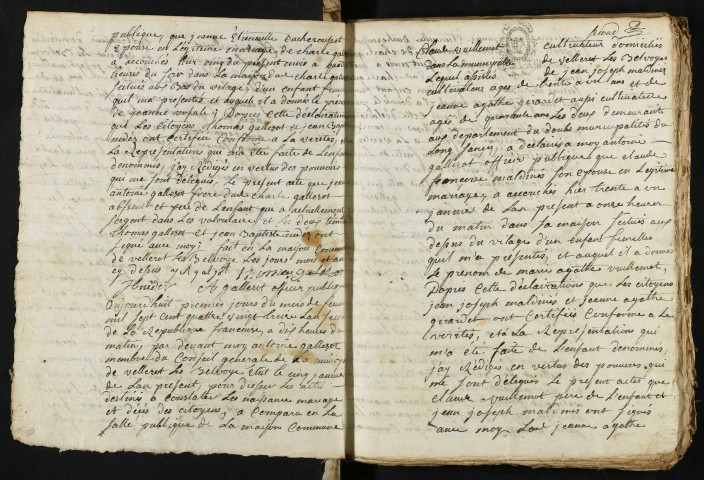 publique, que jeanne Etiennette ducherempet
Epouse en Legitime mariage, de charle gall
a accouchés hier cinq du present mois a
heures du soir dans la maison du dit charle gall
scituée au Bas du village, d'un enfant femelle
quil ma presentes et auquel il a donnés le prenom
de jeanne ; Dapres cette declaration
que Les Citoyens thomas gallezot et jean Bap
nidez ont Certifies Conforme a La verités, et
La Representations qui ma été faite de Lenfant
denommés, jay Rediges en vertus des pouvoirs
que me sont delegués, Le present acte que jean
antoine gallezot frere dudit charle gallezot
absent et pere de Lenfant que a actuellement
sergent dans Les volontaire, et Les deux temoins
thomas gallezot et jean Baptiste nidez ont
signés avec moy ; fait en La maison Commune
de velleret Les Belvoye Les jours mois et an
cy dessus
J Bnidez A gallezot officier public
Aujourdhuit premier jours du mois de fevrier
mil sept cent quatre vingt treize Lan second
de La Republique francaise, a dix heures du
matin, par devant moy antoine gallezot
membre du Conseil generale de La municip
de velleret Les Belvoye élut le cinq janvier
de Lan present, pour dresser Les actes
destinés a Constater Les naissance mariage
et décés des citoyens, a Comparu en La
salle publique de La maison Commune
Claude vuillemet cultivateur domiciliés
dans La municipalités de velleret Les Belvoyes
Lequel assistés de jean joseph maldinés
cultivateur ages de trente et un ans et de
jeanne agathe girardet aussi cultivatrice
agés de quarante ans Les deux demeurants
au departement du doubs municipalités du
Long sancey, a declarés a moy antoine
galleziot officier publique que claude
francoise maldinés son epouse en Legitime
mariage, a accouchés hier trente et un
janvier de Lan present a onze heures
du matin dans sa maison scitués au
dessus du vilage d'un enfant femelles
quil m'a presentés, et auquel il a donnés
Le prenom de marie agathe vuillemet,
Dapres cette declarations que Les citoyens
jean joseph maldinés et jeanne agathe
girardet ont Certifiés Conforme a La
verités, et a La Representations qui
m'a eté faite de Lenfant denommés,
jay Rediges en vertus des pouvoirs, qui
me sont delegués Le present actes que
Claude vuillemet pere de Lenfant et
jean joseph maldinés ont signés
avec moy Ladite jeanne agathe